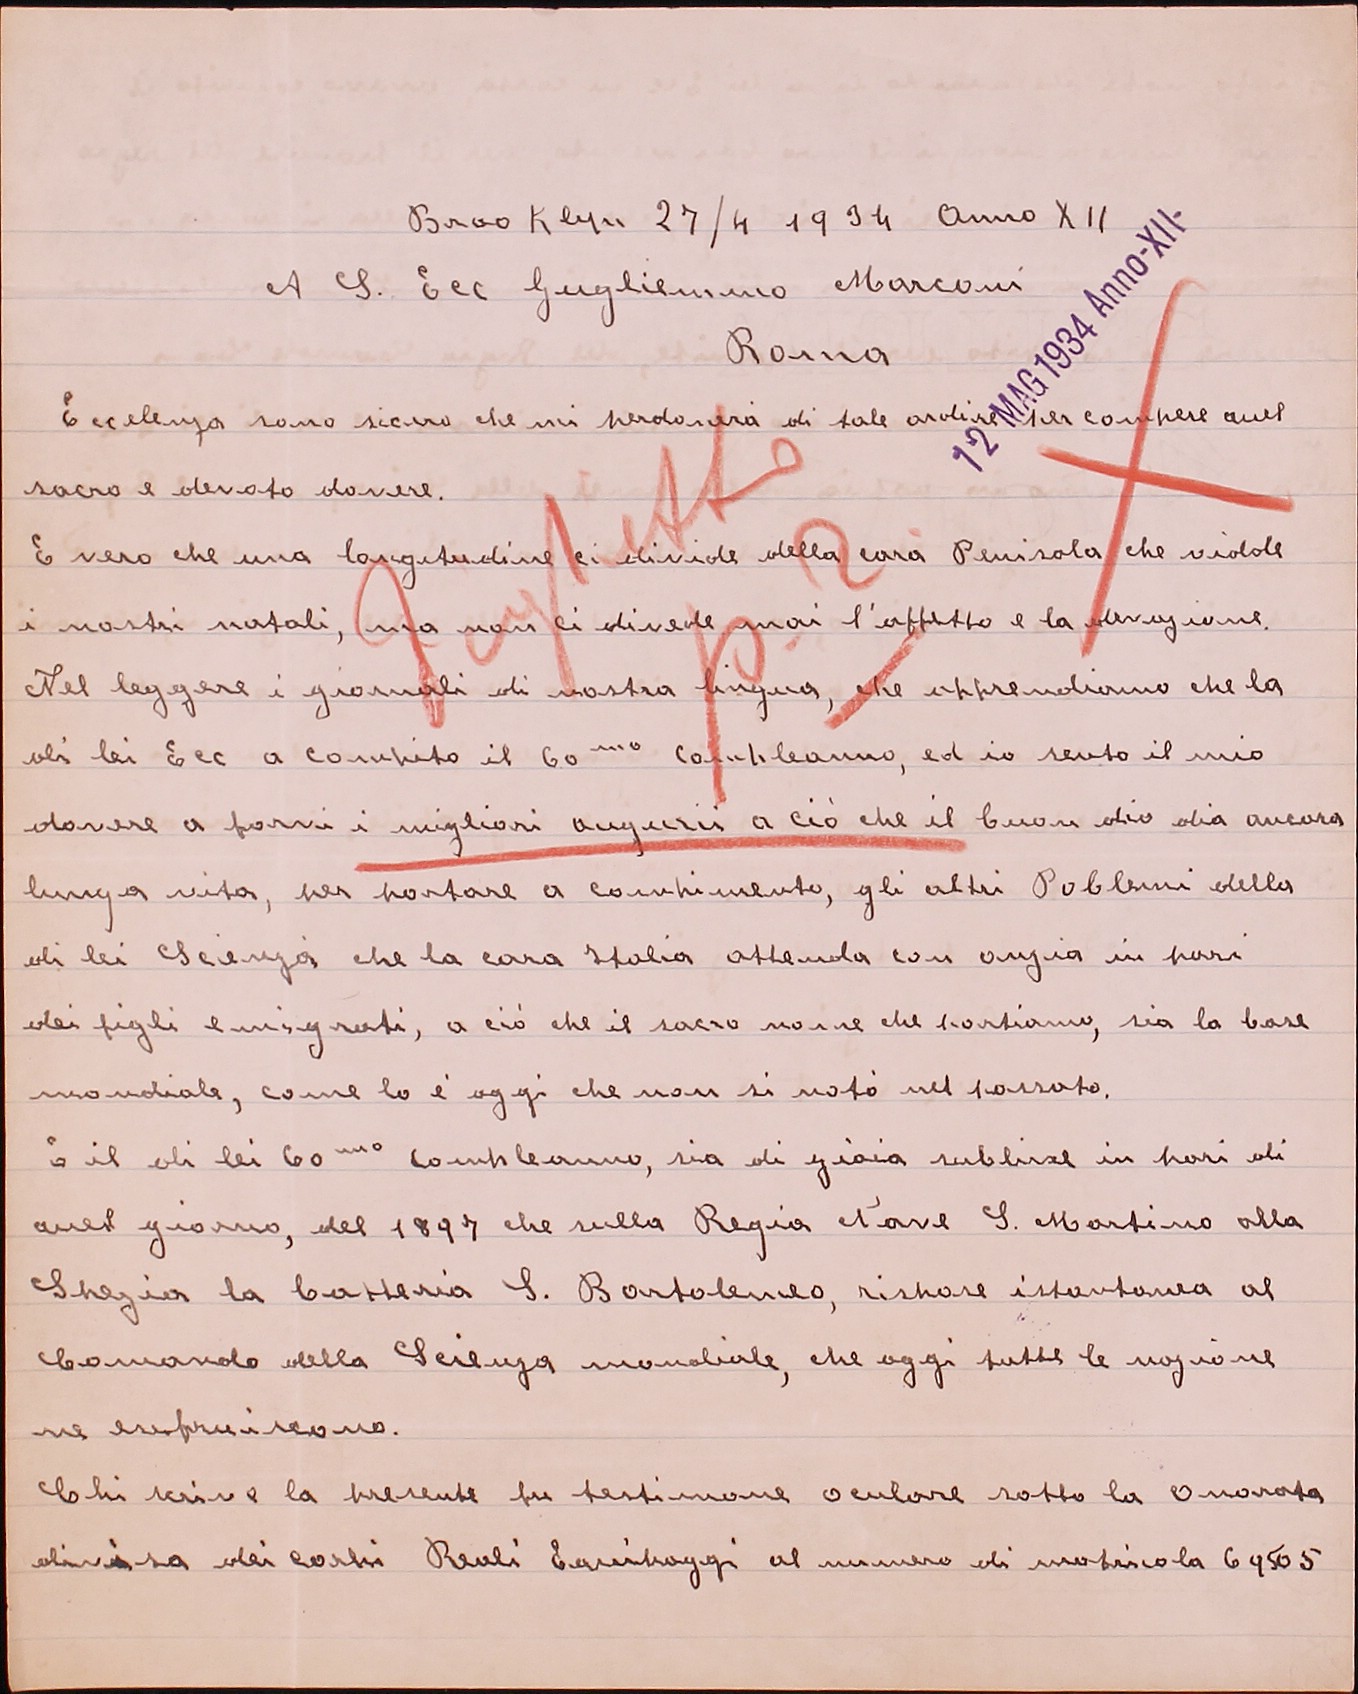 Brooklyn 27/4 1934 Anno XII
A S. Ecc Guglielmmo Marconi
Roma
12 MAG 1934 Anno-XII-
Eccelenza sono sicuro che mi perdonerá di tale ardire per compere quel
sacro e devoto dovere.
E vero che una longitudine ci divide della cara Penisola che vidde
i nostri natali, ma non ci divede mai l'affetto e la devozione.
Nel leggere i giornali di nostra lingua, che apprendiamo che la
di lei Ecc a compito il 60 mo compleanno, ed io sento il mio
dovere a farvi i migliori augurii a ció che il buon dio dia ancora
lunga vita, per portare a compimento, gli altri Poblemi della
di lei Scienza che la cara Italia attenda con anzia in pari
dei figli emigrati, a ció che il sacro nome che portiamo, sia la base
mondiale, come lo é oggi che non si notó nel passato.
E il di lei 60 mo compleanno, sia di gioia sublime in pari di
quel giorno, del 1897 che sulla Regia Nave S. Martino alla
Spezia la batteria S. Bartolemeo, rispose istantanea al
Comando della Scienza mondiale, che oggi tutte le nazione
ne
Chi scrive la presente fu testimone oculare sotto la Onorata
divisa dei corpi Reali Equipaggi al numero di matricola 69505